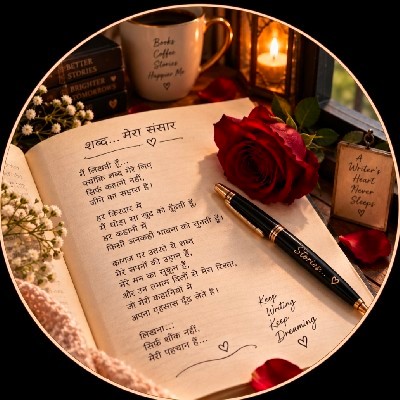 BETTER
STORIES
BRIGHTER
TOMORROWS
Books
Coffee
Stories
Happier Me
शब्द... मेरा संसार
मैं लिखती हूँ...
क्योंकि शब्द मेरे लिए
सिर्फ कहानी नहीं,
जीने का सहारा है।
हर किरदार में
मैं थोड़ा सा खुद को ढूँढती हूँ,
हर कहानी में
किसी अनकही भावना को चुनती हूँ।
काग़ज़ पर उतरते ये शब्द
मेरे सपनों की उड़ान हैं,
मेरे मन का सुकून हैं,
और उन तमाम दिलों से मेरा रिश्ता,
जो मेरी कहानियों में
अपना एहसास ढूँढ लेते हैं।
लिखना...
सिर्फ शौक नहीं,
मेरी पहचान है...
Keep
Writing
Keep
Dreaming
Stories...
A
Writer's
Heart
Never
Sleeps